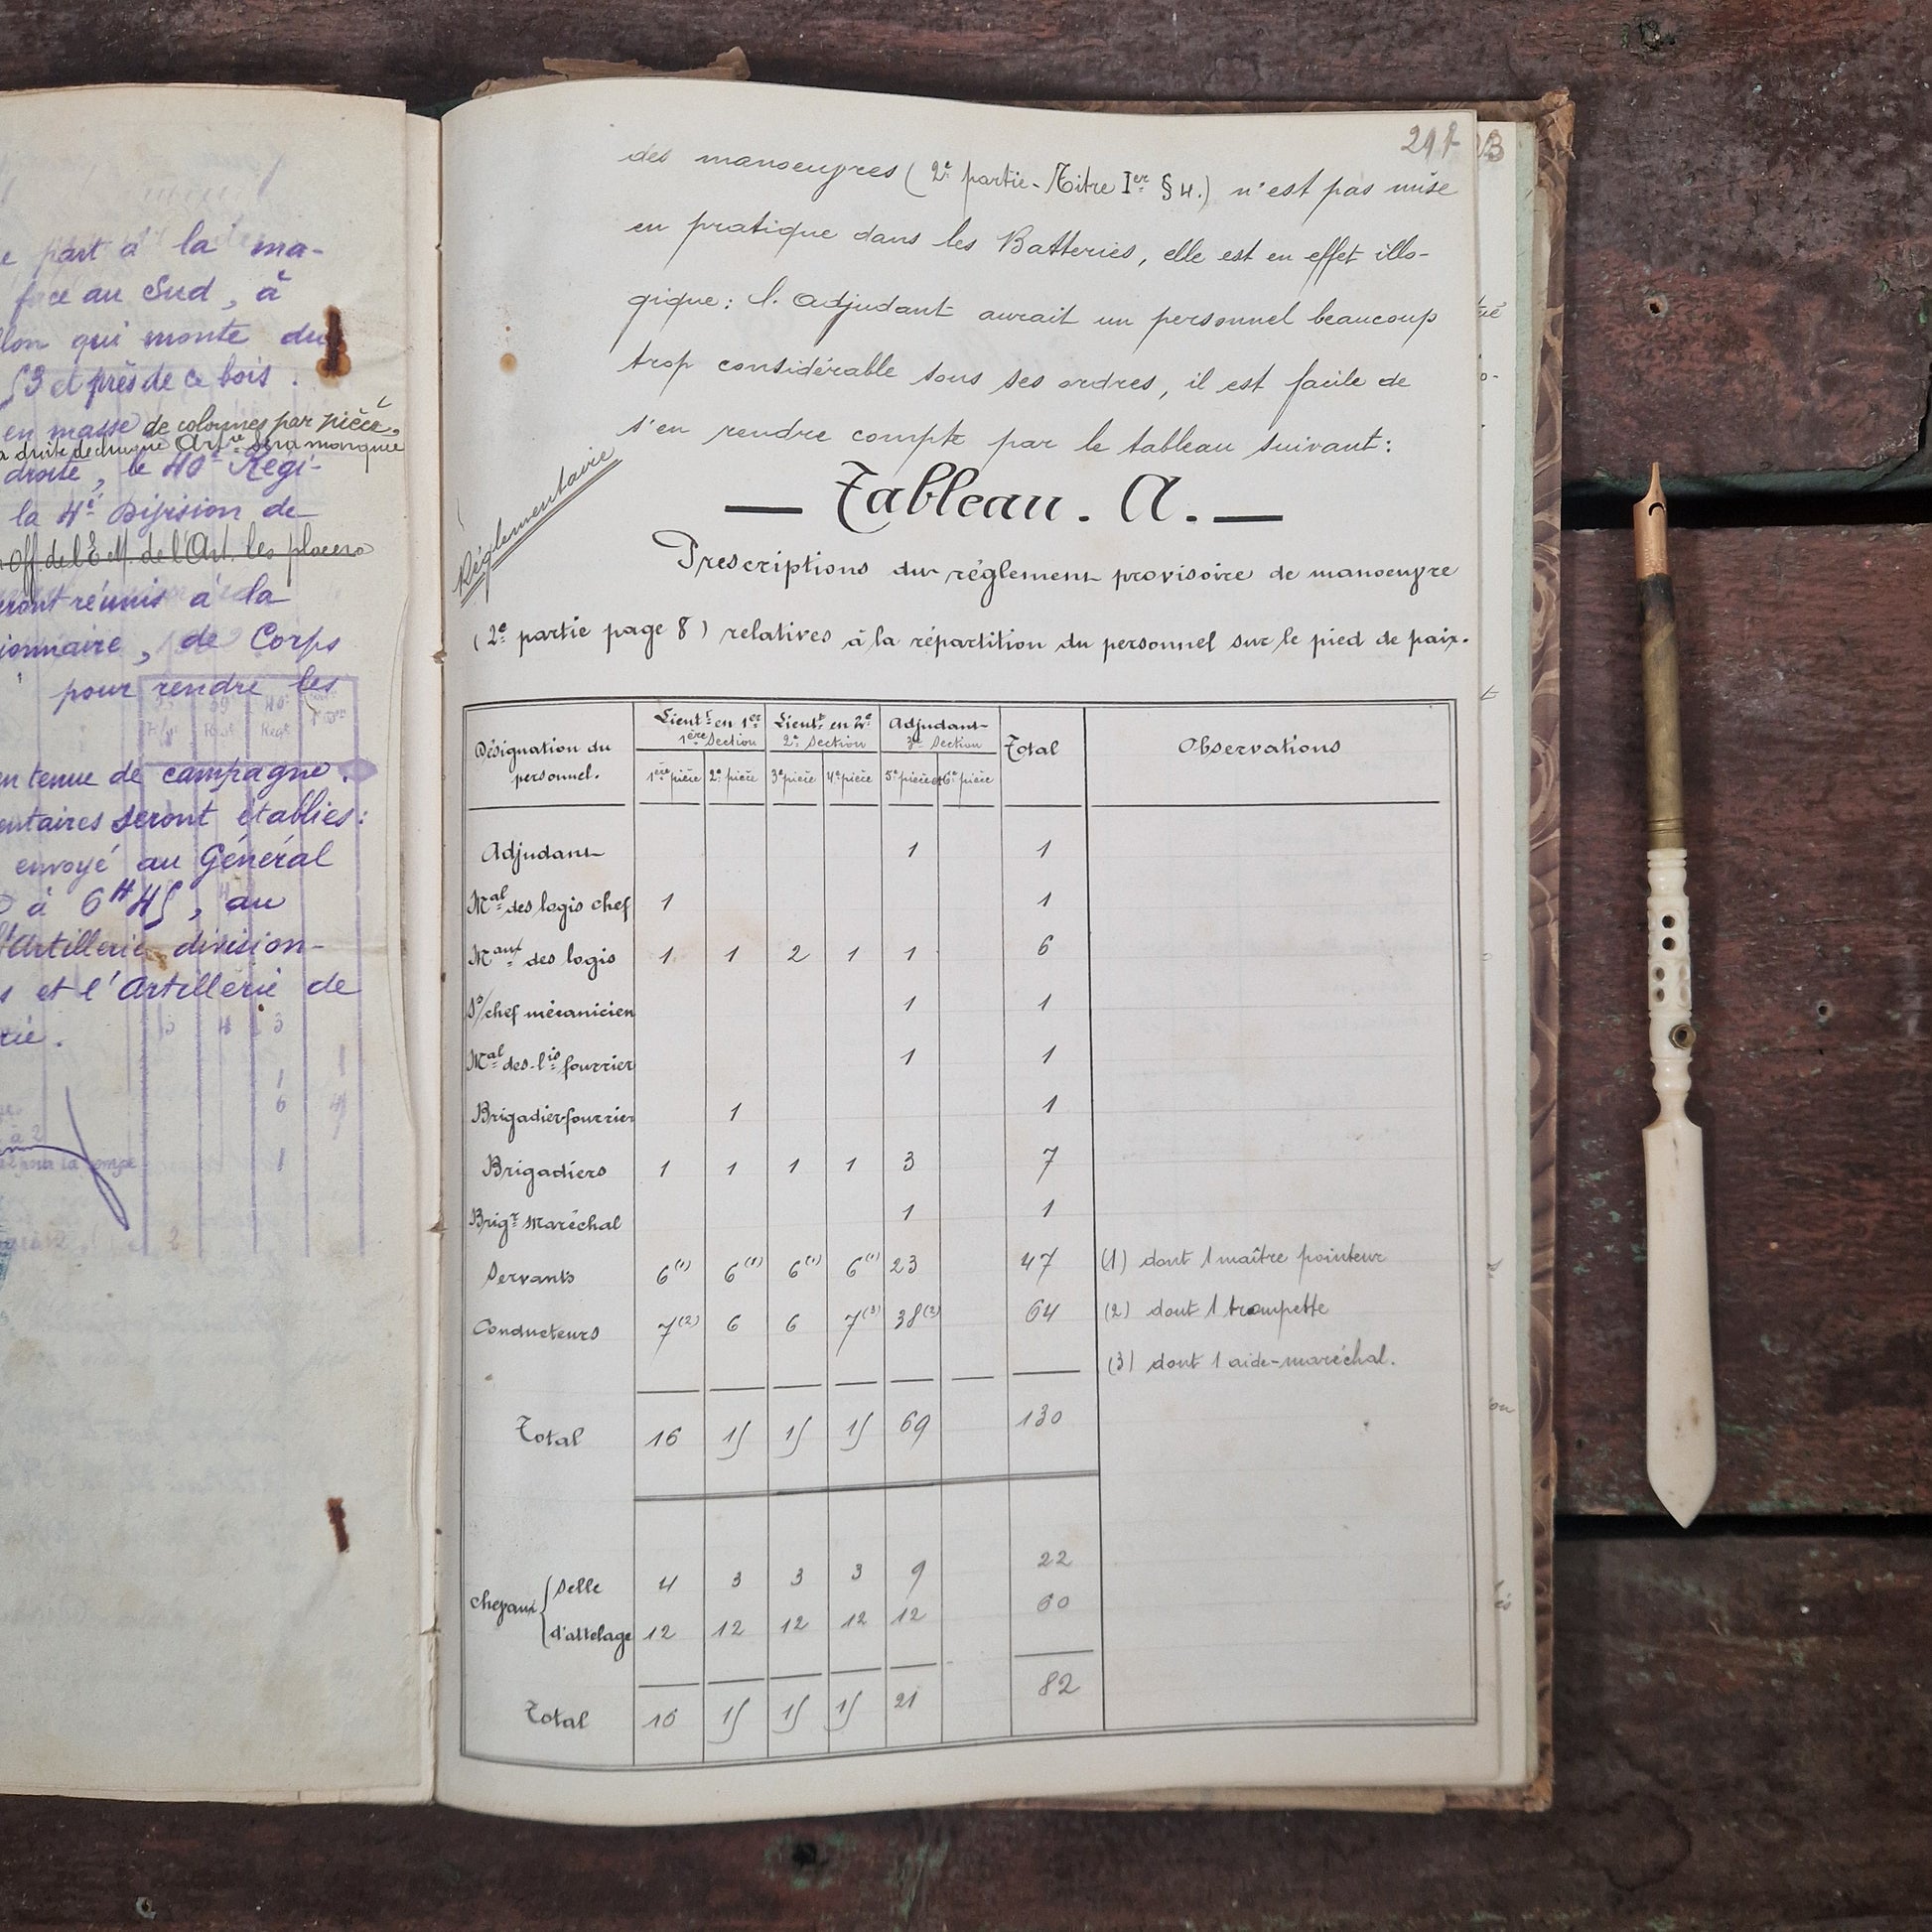 part à la ma-
face au Sud, à
qui monte du
et près de ce bois.
en masse de colonnes par pièce,
droite, le 40e Régi-
la 4e Division de
off. de l'E.M. de l'Art. les placera
réunis à la
de Corps
pour rendre les
en tenue de campagne.
seront établies:
envoyé au Général
à 6H45, au
Artillerie division-
et l'Artillerie de
des manoeuvres (2e partie - Titre Ier § 4.) n'est pas mise
en pratique dans les Batteries, elle est en effet illo-
gique: l'Adjudant aurait un personnel beaucoup
trop considérable sous ses ordres, il est facile de
s'en rendre compte par le tableau suivant:
Réglementaire
— Tableau. A. —
Prescriptions du règlement provisoire de manoeuvre
(2e partie page 8) relatives à la répartition du personnel sur le pied de paix.
Désignation du personnel. Lieutt en 1er 1ère Section Lieutt en 2e 2e Section Adjudant 3e Section Total Observations
1ère pièce 2e pièce 3e pièce 4e pièce 5e pièce et 6e pièce
Adjudant 1 1
Mal des logis chef 1 1
Maux des logis 1 1 2 1 1 6
Ss/chef mécanicien 1 1
Mal des-lis fourrier 1 1
Brigadier-fourrier 1 1
Brigadiers 1 1 1 1 3 7
Brigr Maréchal 1 1
Servants 6(1) 6(1) 6(1) 6(1) 23 47 (1) dont 1 maître pointeur
Conducteurs 7(2) 6 6 7(3) 38(2) 64 (2) dont 1 trompette
(3) dont 1 aide-maréchal.
Total 16 15 15 15 69 130
chevaux { Selle 4 3 3 3 9 22
d'attelage 12 12 12 12 12 60
Total 16 15 15 15 21 82